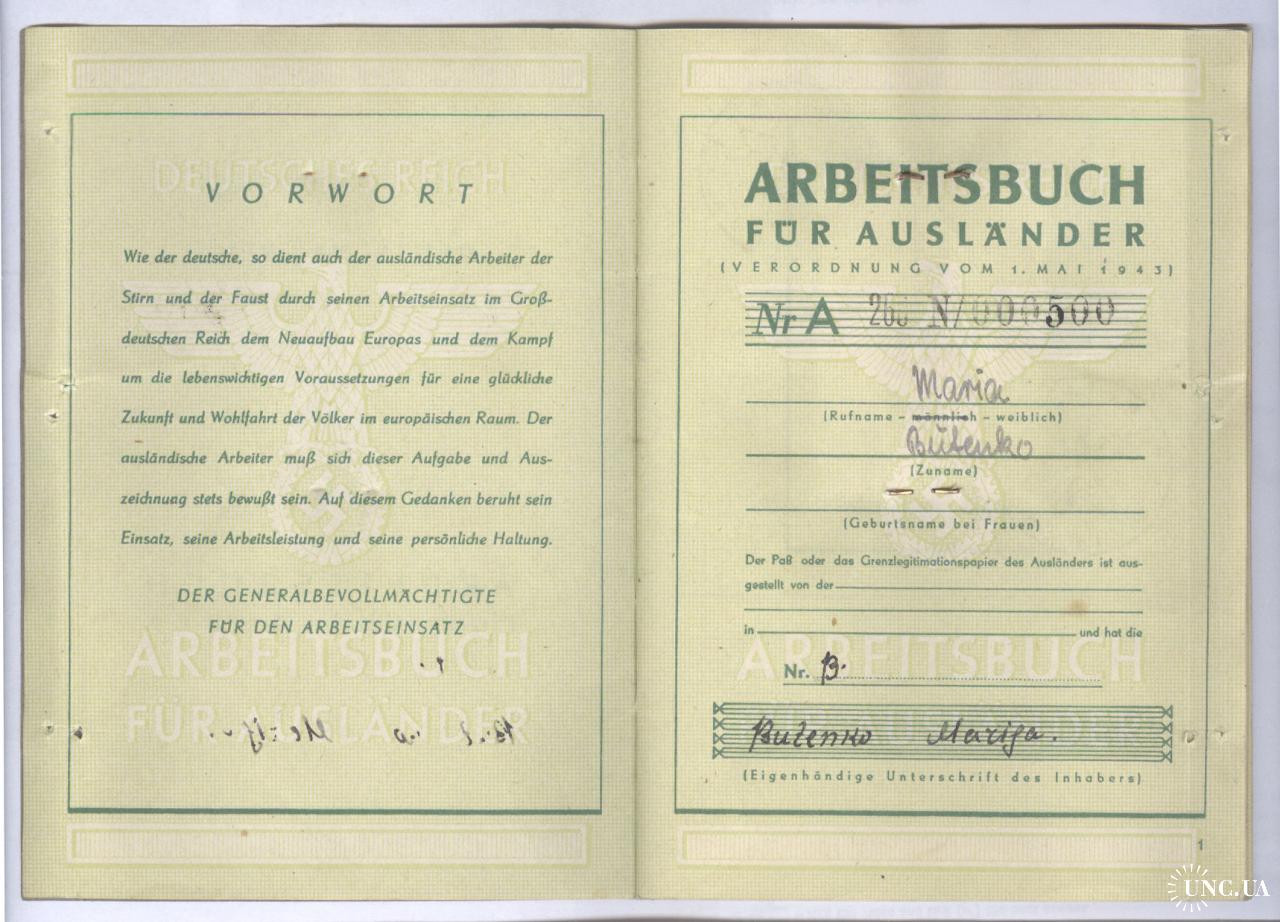 DEUTSCHES REICH
VORWORT
Wie der deutsche, so dient auch der ausländische Arbeiter der
Stirn und der Faust durch seinen Arbeitseinsatz im Groß-
deutschen Reich dem Neuaufbau Europas und dem Kampf
um die lebenswichtigen Voraussetzungen für eine glückliche
Zukunft und Wohlfahrt der Völker im europäischen Raum. Der
ausländische Arbeiter muß sich dieser Aufgabe und Aus-
zeichnung stets bewußt sein. Auf diesem Gedanken beruht sein
Einsatz, seine Arbeitsleistung und seine persönliche Haltung.
DER GENERALBEVOLLMÄCHTIGTE
FÜR DEN ARBEITSEINSATZ
ARBEITSBUCH
FÜR AUSLÄNDER
ARBEITSBUCH
FÜR AUSLÄNDER
(VERORDNUNG VOM 1. MAI 1943)
Nr A N/000500
Maria
(Rufname – männlich – weiblich)
Butenko
(Zuname)
(Geburtsname bei Frauen)
Der Paß oder das Grenzlegitimationspapier des Ausländers ist aus-
gestellt von der
in und hat die
ARBEITSBUCH
Nr. B.
FÜR AUSLÄNDER
Butenko Marija.
(Eigenhändige Unterschrift des Inhabers)
1
UNC.UA